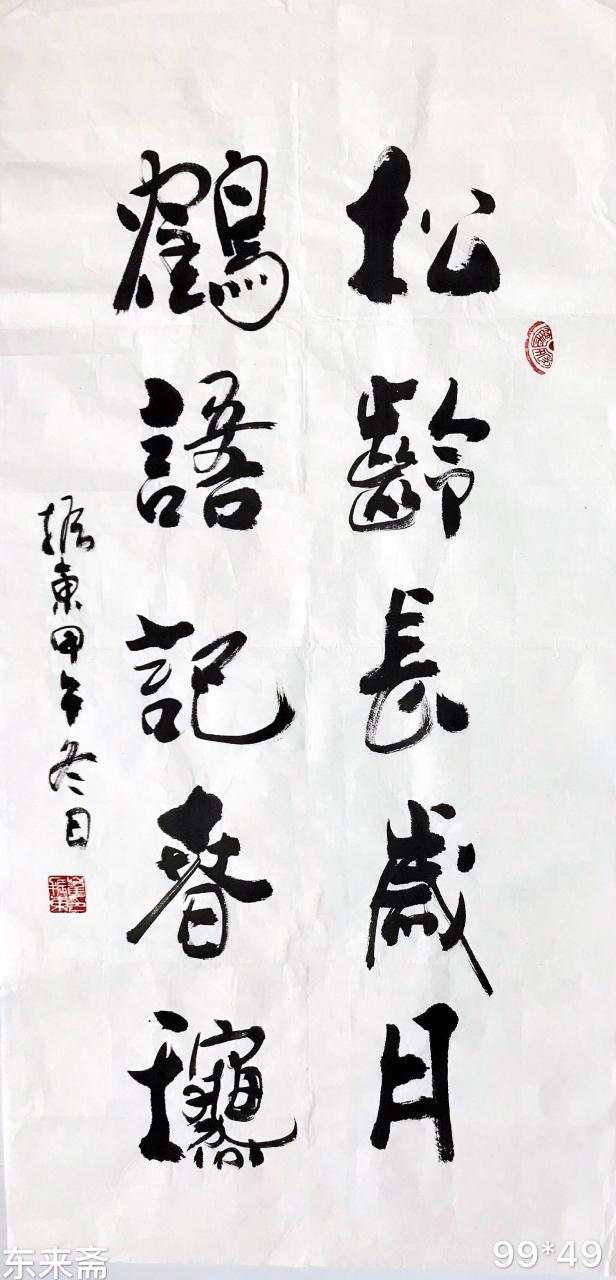 松齡長歲月
鶴語記春龝
振東甲午冬日
东来斋
99*49